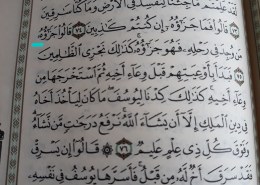 لَقَدْ عَلِمْتُم مَّا جِئْنَا لِنُفْسِدَ فِي ٱلْأَرْضِ وَمَا كُنَّا سَٰرِقِينَ
٧٣ قَالُوا۟ فَمَا جَزَٰٓؤُهُۥٓ إِن كُنتُمْ كَٰذِبِينَ ٧٤ قَالُوا۟ جَزَٰٓؤُهُۥ
مَن وُجِدَ فِي رَحْلِهِۦ فَهُوَ جَزَٰٓؤُهُۥ كَذَٰلِكَ نَجْزِي ٱلظَّٰلِمِينَ
٧٥ فَبَدَأَ بِأَوْعِيَتِهِمْ قَبْلَ وِعَآءِ أَخِيهِ ثُمَّ ٱسْتَخْرَجَهَا مِن
وِعَآءِ أَخِيهِ كَذَٰلِكَ كِدْنَا لِيُوسُفَ مَا كَانَ لِيَأْخُذَ أَخَاهُ
فِي دِينِ ٱلْمَلِكِ إِلَّآ أَن يَشَآءَ ٱللَّهُ نَرْفَعُ دَرَجَٰتٍ مَّن نَّشَآءُ
وَفَوْقَ كُلِّ ذِي عِلْمٍ عَلِيمٌ ٧٦ قَالُوٓا۟ إِن يَسْرِقْ
فَقَدْ سَرَقَ أَخٌ لَّهُۥ مِن قَبْلُ فَأَسَرَّهَا يُوسُفُ فِي نَفْسِهِۦ